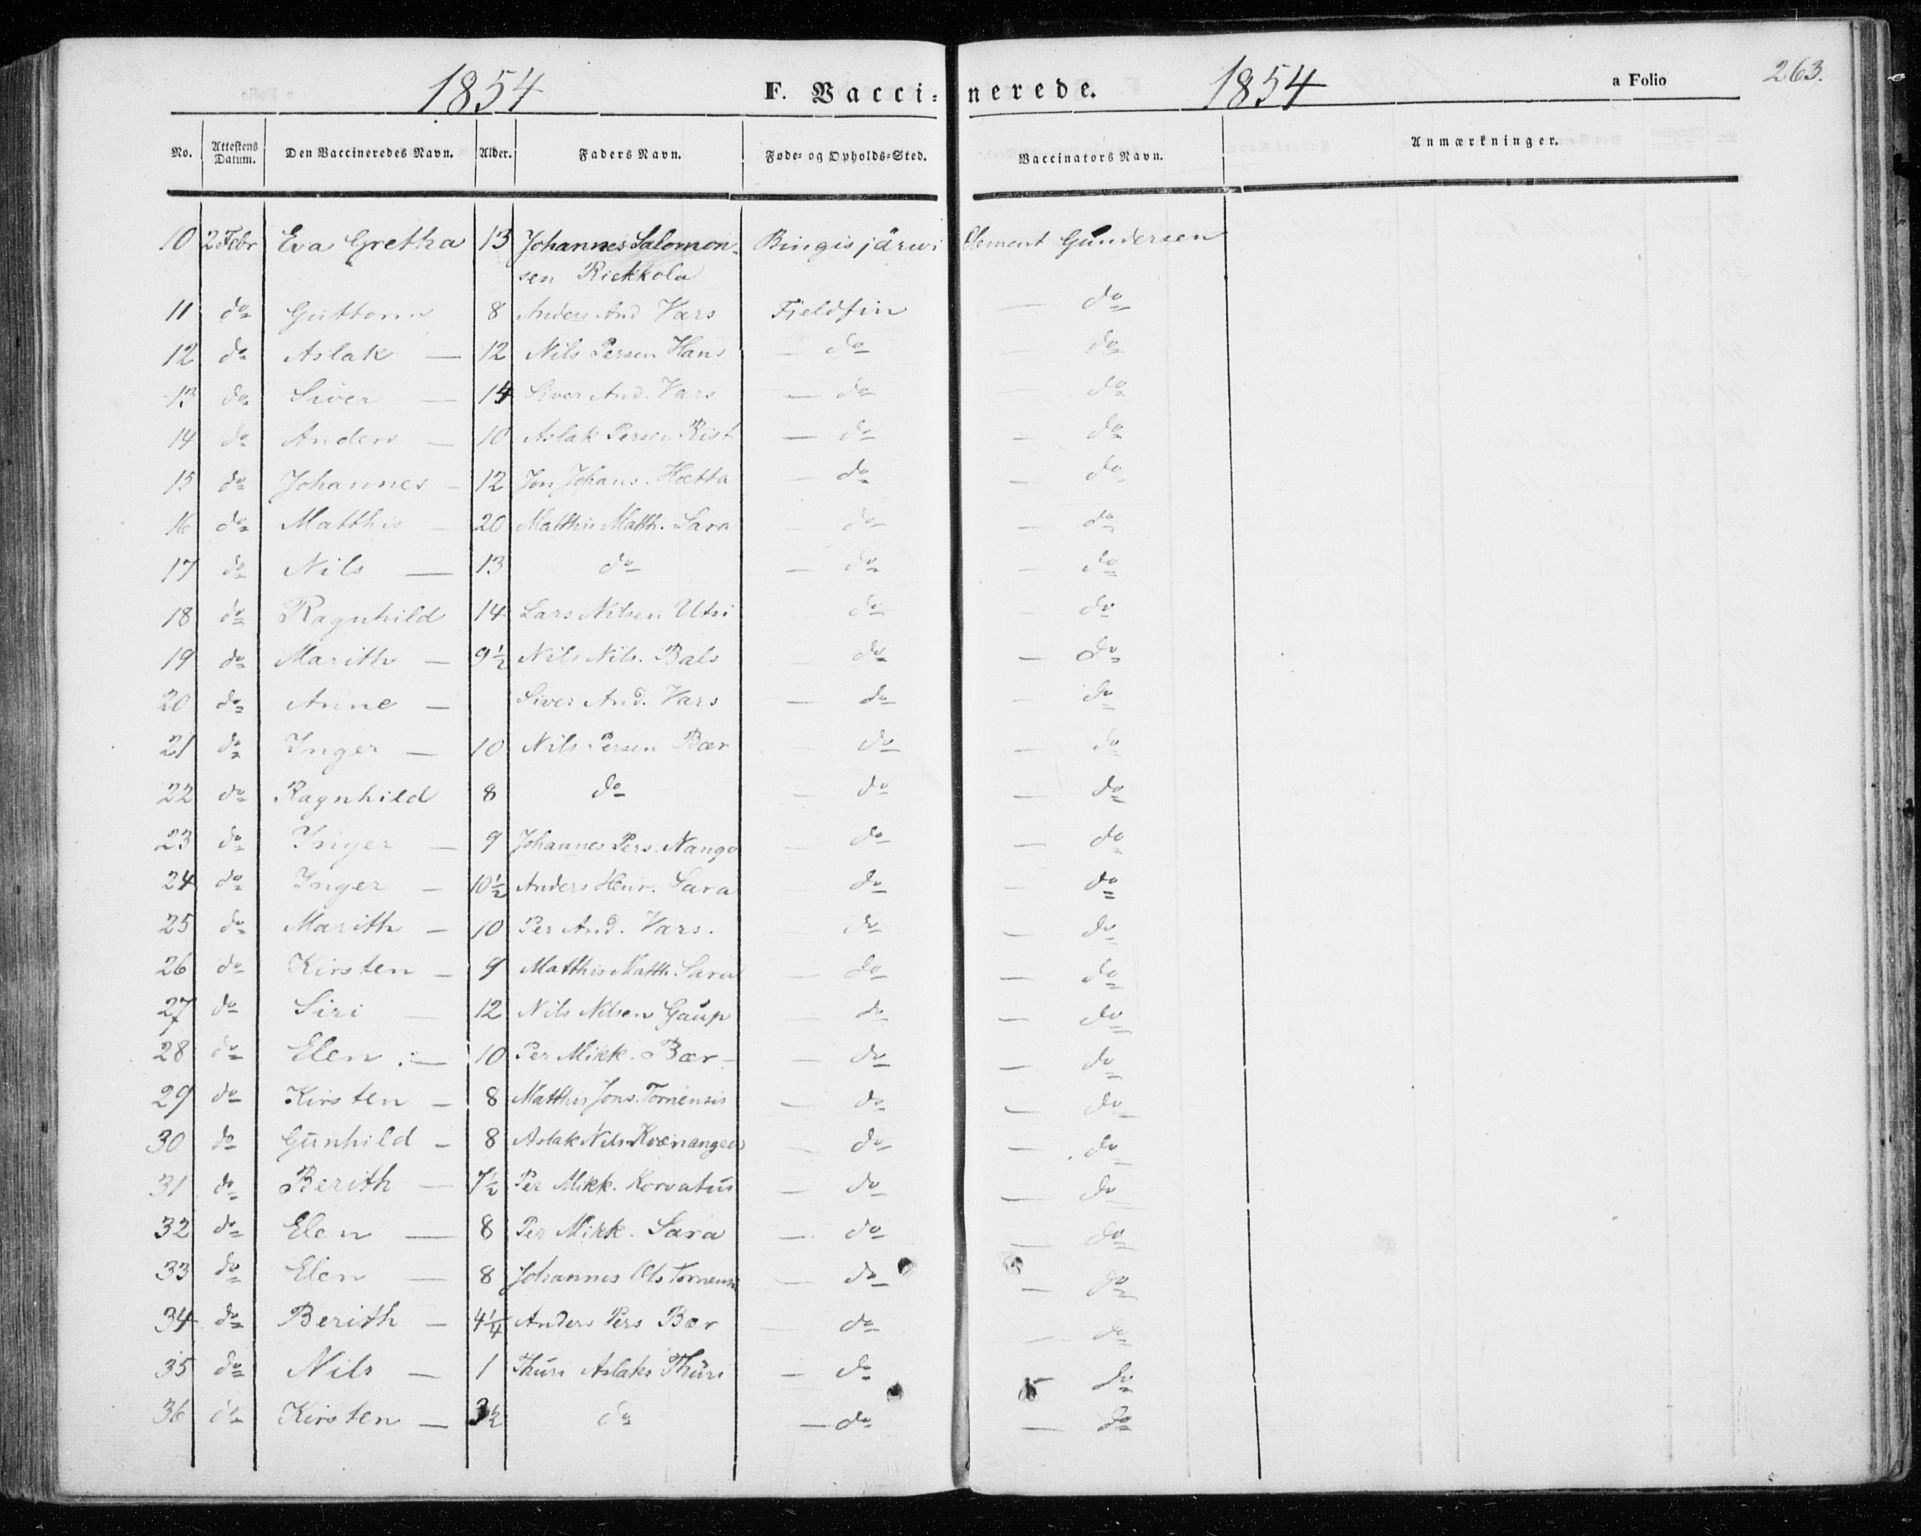 1854 F. Vacci= nerede. 1854 a Folio 263.
No. Attestens Datum. Den Vaccineredes Navn. Alder. Faders Navn. Føde- og Opholds-Sted. Vaccinators Navn. Anmærkninger.
10 2 Febr Eva Gretha 13 Johannes Salomon- Bingisjärvi Clement Gundersen
sen Riekkola
11 do Guttorm 8 Anders And Vars Fieldfin — do
12 do Aslak — 12 Nils Persen Hans — do — do
13 do Siver — 14 Siver And. Vars — do — do
14 do Anders — 10 Aslak Persen Rist — do — do
15 do Johannes — 12 Jon Johans. Hætta — do — do
16 do Matthis — 20 Matthis Matth. Sara — do — do
17 do Nils — 13 do — do — do
18 do Ragnhild 14 Lars Nilsen Utsi do — do
19 do Marith — 9½ Nils Nils. Bals — do — do
20 do Anne — Siver And. Vars — do — do
21 do Inger — 10 Nils Persen Bær do — do
22 do Ragnhild 8 do — do — do
23 do Inger — 9 Johannes Pers. Nango — do — do
24 do Inger — 10½ Anders Henr. Sara do — do
25 do Marith — 10 Per And. Vars. — do — do
26 do Kirsten — 9 Matthis Matth. Sara — do — do
27 do Siri — 12 Nils Nilsen Gaup — do — do
28 do Elen — 10 Per Mikk. Bær — do — do
29 do Kirsten — 8 Matthis Jons. Tornensis — do — do
30 do Gunhild — 8 Aslak Nils Kvænangen — do — do
31 do Berith — 7½ Per Mikk. Korvatus — do — do
32 do Elen — 8 Per Mikk. Sara — do — do
33 do Elen — 8 Johannes Ols Tornensis — do — do
34 do Berith — 4¼ Anders Pers Bær — do — do
35 do Nils — 1 Thuri Aslaks Thuri — do do
36 do Kirsten — 3½ do — do — do